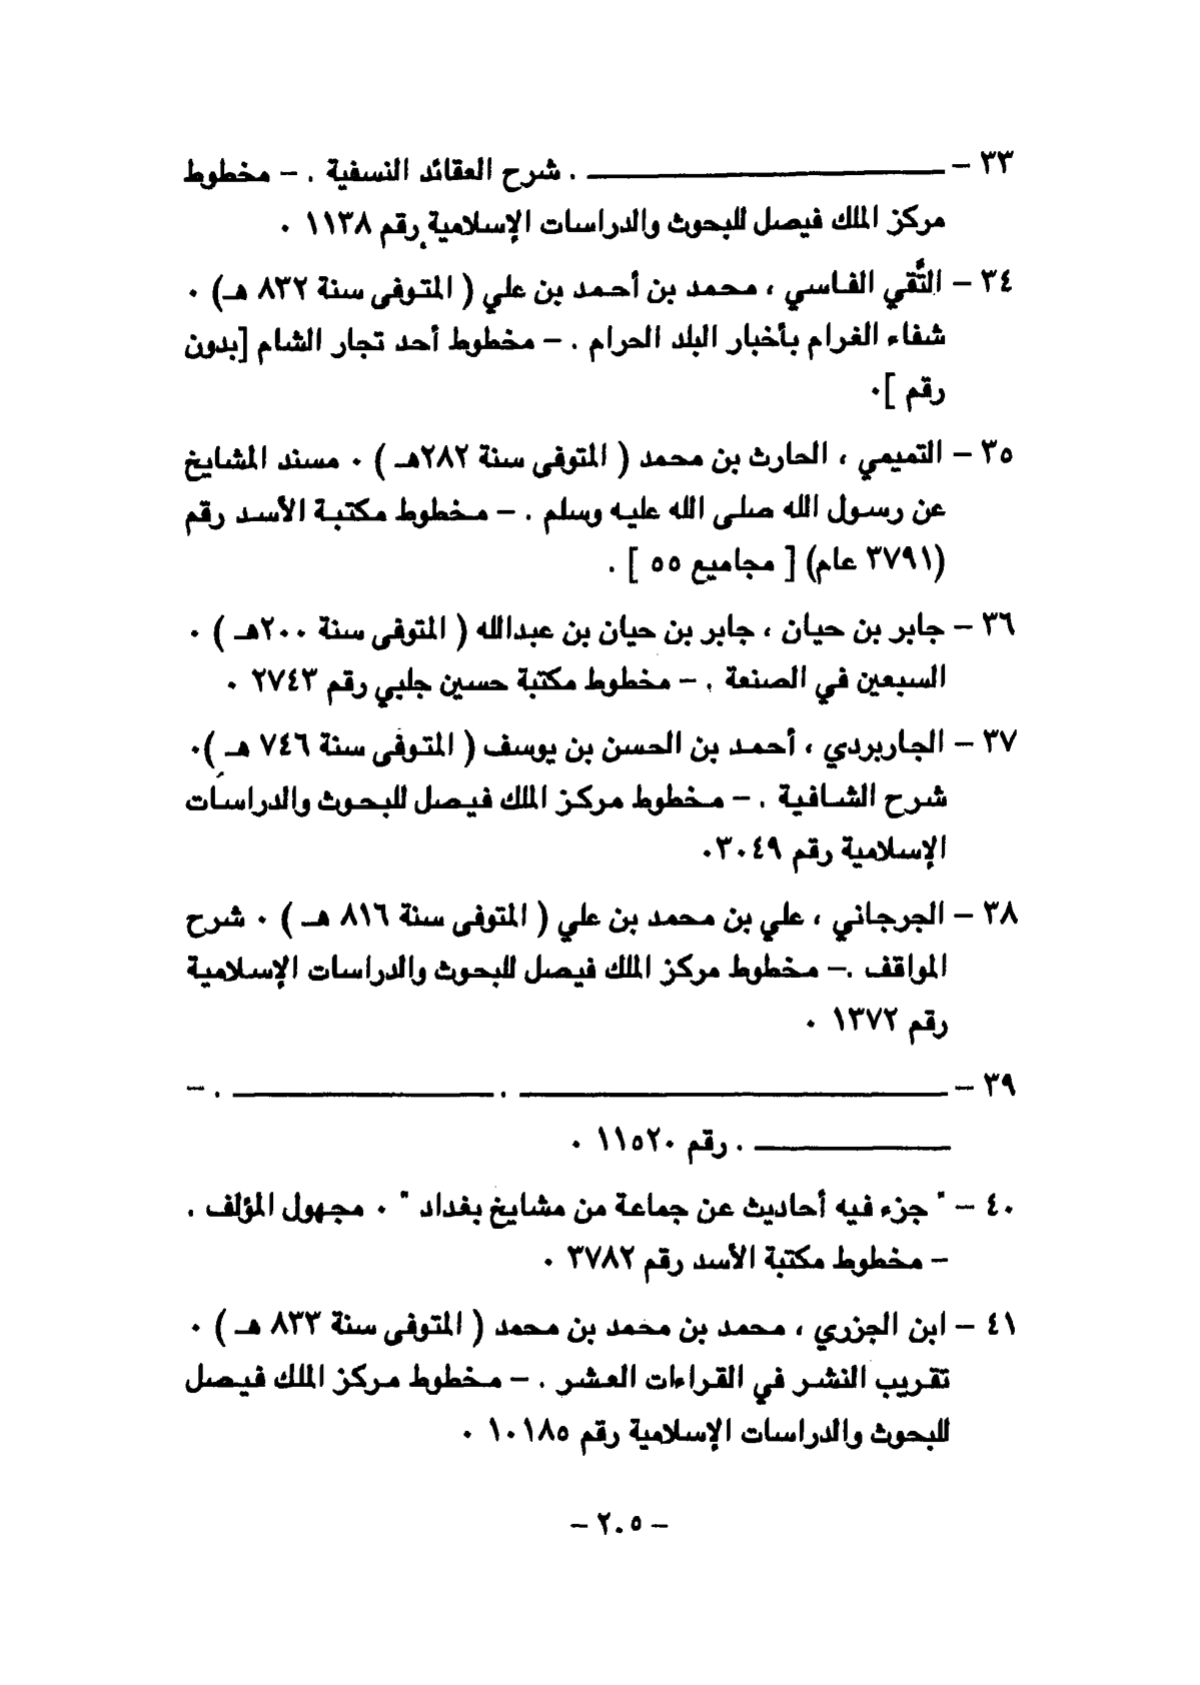 ٣٣ – ــــــــــــــــــــــــــــــــ . شرح العقائد النسفية . – مخطوط
مركز الملك فيصل للبحوث والدراسات الإسلامية رقم ١١٣٨ ٠
٣٤ – التَّقي الفاسي ، محمد بن أحمد بن علي ( المتوفى سنة ٨٣٢ هـ) ٠
شفاء الغرام بأخبار البلد الحرام . – مخطوط أحد تجار الشام [بدون
رقم ]٠
٣٥ – التميمي ، الحارث بن محمد ( المتوفى سنة ٢٨٢هـ ) ٠ مسند المشايخ
عن رسول الله صلى الله عليه وسلم . – مخطوط مكتبة الأسد رقم
(٣٧٩١ عام) [ مجاميع ٥٥ ] .
٣٦ – جابر بن حيان ، جابر بن حيان بن عبدالله ( المتوفى سنة ٢٠٠هـ ) ٠
السبعين في الصنعة . – مخطوط مكتبة حسين جلبي رقم ٢٧٤٣ ٠
٣٧ – الجاربردي ، أحمد بن الحسن بن يوسف ( المتوفى سنة ٧٤٦ هـ )٠
شرح الشافية . – مخطوط مركز الملك فيصل للبحوث والدراسات
الإسلامية رقم ٣٠٤٩٠
٣٨ – الجرجاني ، علي بن محمد بن علي ( المتوفى سنة ٨١٦ هـ ) ٠ شرح
المواقف .– مخطوط مركز الملك فيصل للبحوث والدراسات الإسلامية
رقم ١٣٧٢ ٠
٣٩ – ــــــــــــــــــــــــــــــــ . ــــــــــــــــــــ . –
ــــــــــــــــ . رقم ١١٥٢٠ ٠
٤٠ – " جزء فيه أحاديث عن جماعة من مشايخ بغداد " ٠ مجهول المؤلف .
– مخطوط مكتبة الأسد رقم ٣٧٨٢ ٠
٤١ – ابن الجزري ، محمد بن محمد بن محمد ( المتوفى سنة ٨٣٣ هـ ) ٠
تقريب النشر في القراءات العشر . – مخطوط مركز الملك فيصل
للبحوث والدراسات الإسلامية رقم ١٠١٨٥ ٠
– ٢٠٥ –